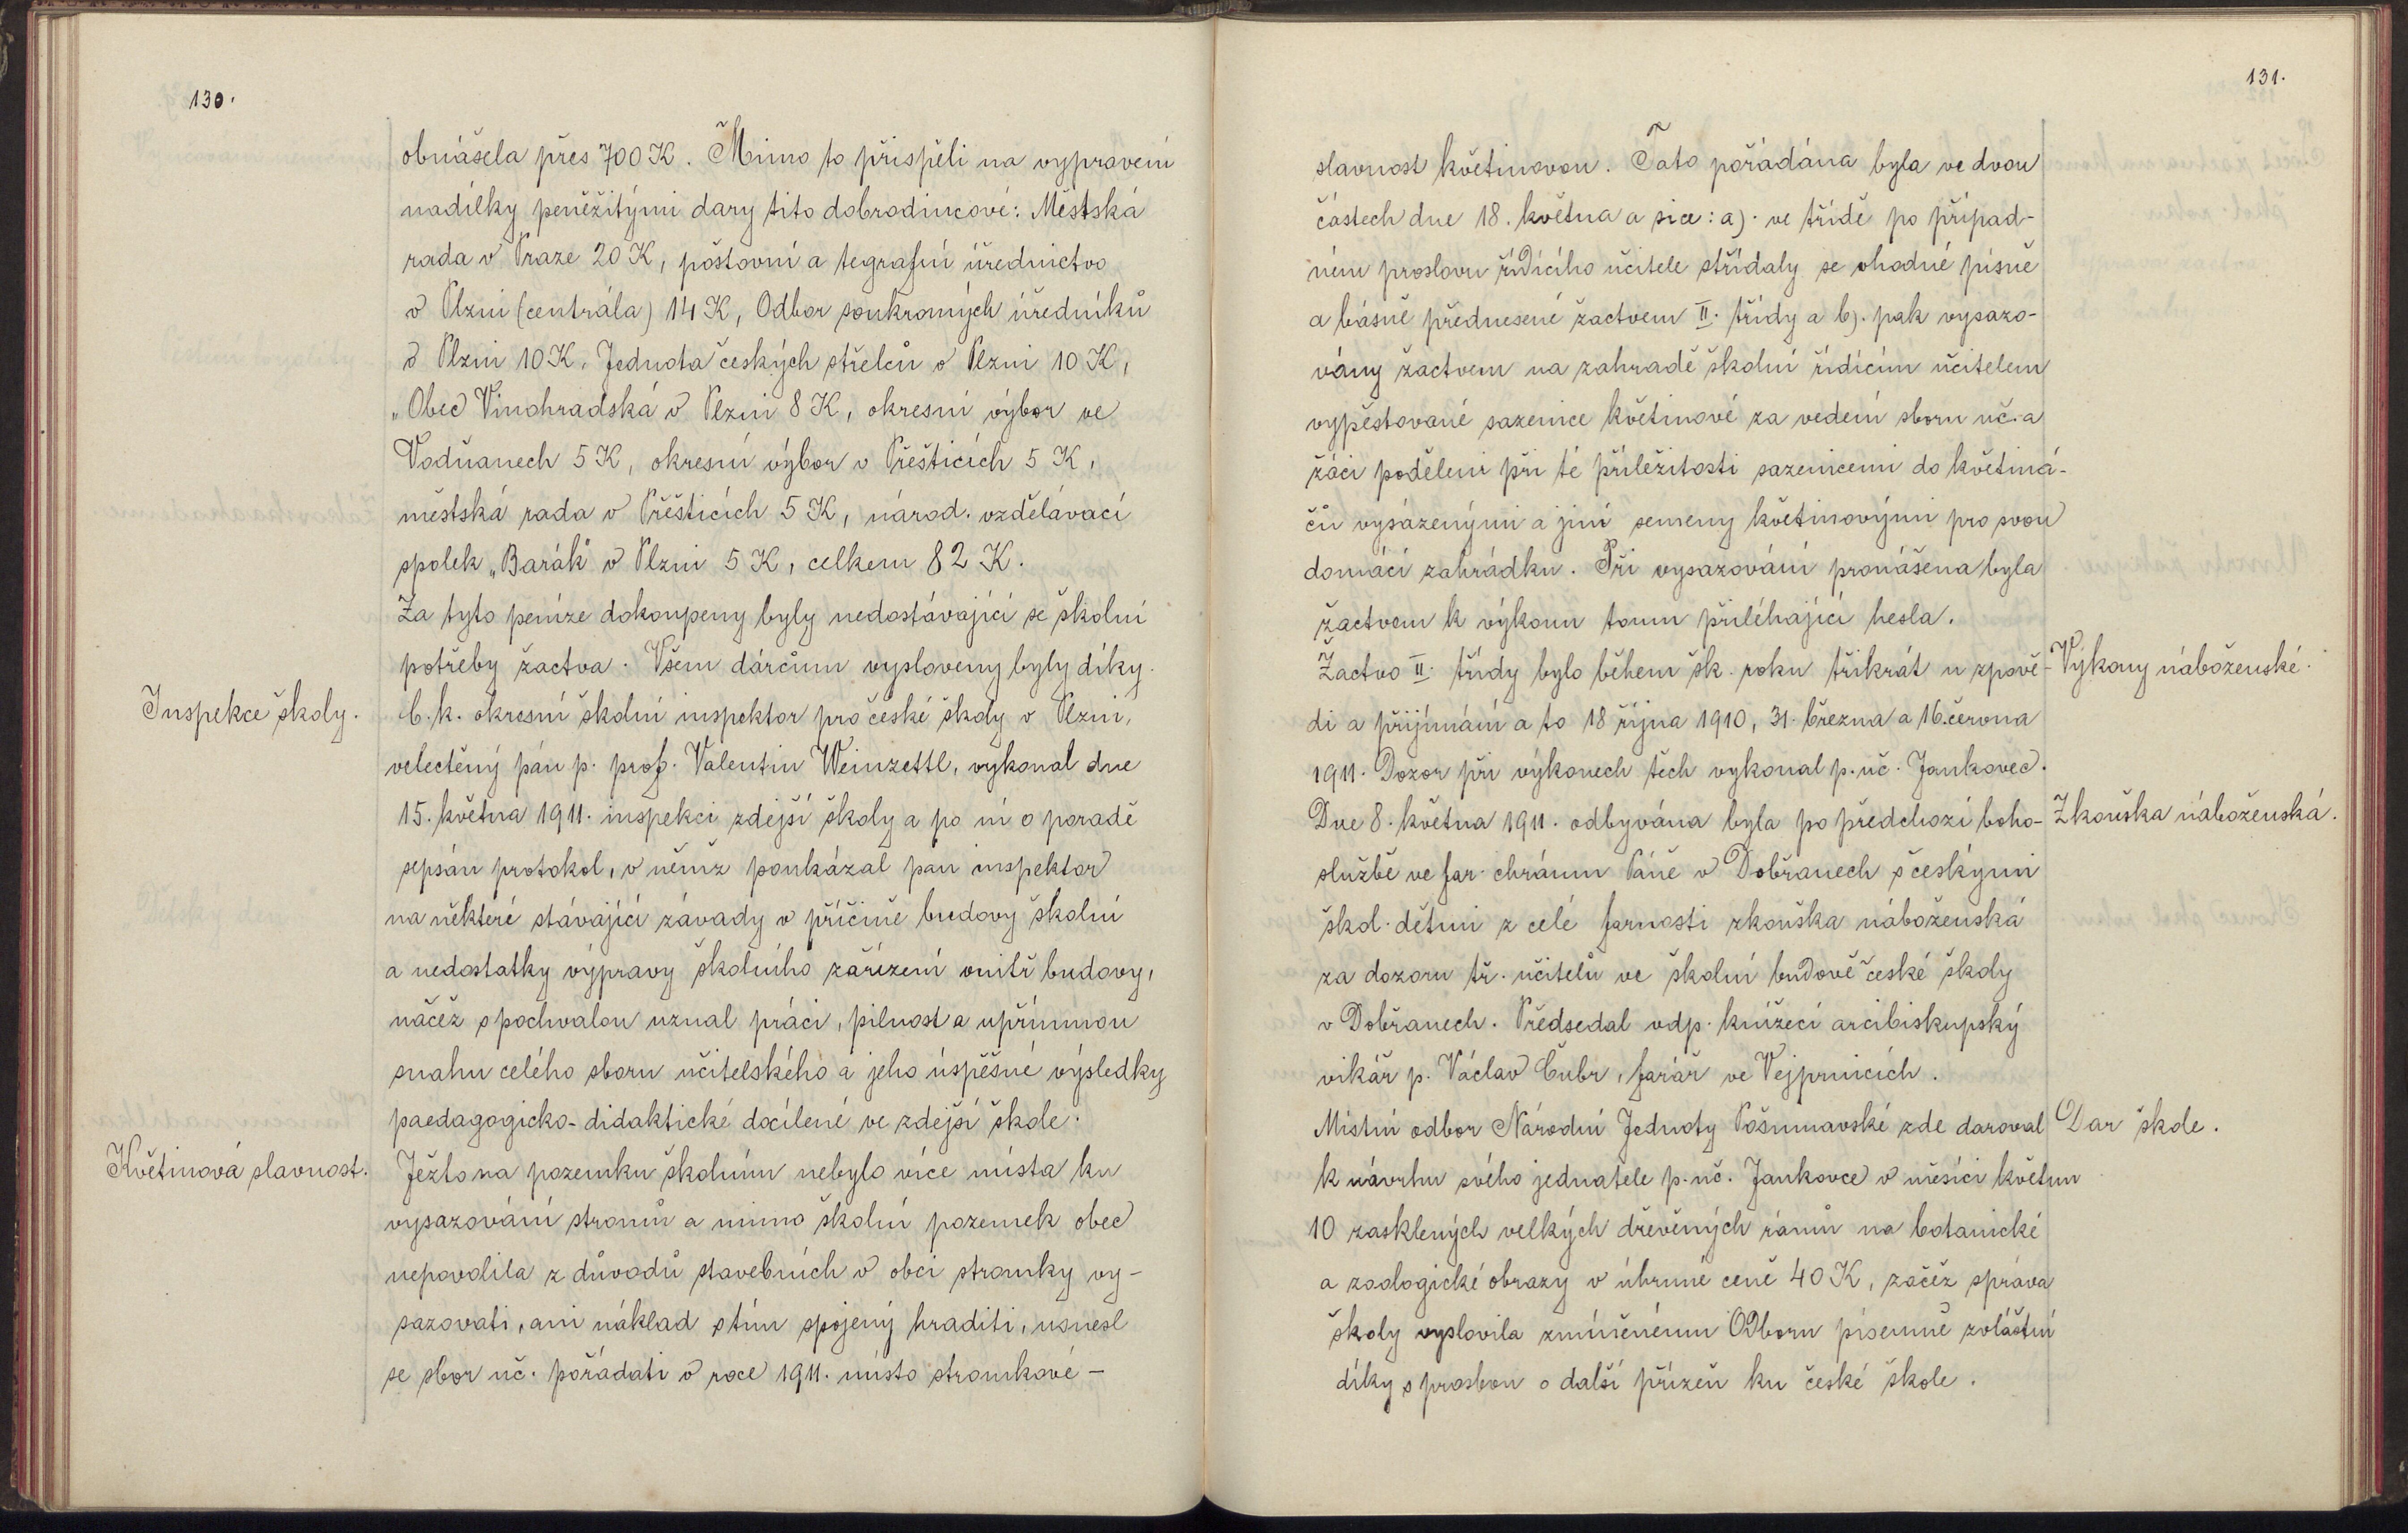 130.
obnášela přes 700 K. Mimo to přispěli na vypravení
nadílky peněžitými dary tito dobrodincové: Městská
rada v Praze 20 K, poštovní a tegrafní úřednictvo
v Plzni (centrála) 14 K, Odbor soukromých úředníků
v Plzni 10 K, Jednota českých střelců v Plzni 10 K,
„Obec Vinohradská v Plzni 8 K, okresní výbor ve
Vodňanech 5 K, okresní výbor v Přešticích 5 K,
městská rada v Přešticích 5 K, národ. vzdělávací
spolek „Barák" v Plzni 5 K, celkem 82 K.
Za tyto peníze dokoupeny byly nedostávající se školní
potřeby žactva. Všem dárcům vysloveny byly díky.
Inspekce školy.
C. k. okresní školní inspektor pro české školy v Plzni,
velectěný pán p. prof. Valentin Weinzettl, vykonal dne
15. května 1911. inspekci zdejší školy a po ní o poradě
sepsán protokol, v němž poukázal pan inspektor
na některé stávající závady v příčině budovy školní
a nedostatky výpravy školního zařízení vnitř budovy,
načež s pochvalou uznal práci, pilnost a upřímnou
snahu celého sboru učitelského a jeho úspěšné výsledky
paedagogicko-didaktické docílené ve zdejší škole.
Květinová slavnost.
Ježto na pozemku školním nebylo více místa ku
vysazování stromů a mimo školní pozemek obec
nepovolila z důvodů stavebních v obci stromky vy-
sazovati, ani náklad s tím spojený hraditi, usnesl
se sbor uč. pořádati v roce 1911. místo stromkové –
131.
slavnost květinovou. Tato pořádána byla ve dvou
částech dne 18. května a sice: a). ve třídě po případ-
ném proslovu řídícího učitele střídaly se vhodné písně
a básně přednesené žactvem II. třídy a b). pak vysazo-
vány žactvem na zahradě školní řídícím učitelem
vypěstované sazenice květinové za vedení sboru uč. a
žáci poděleni při té příležitosti sazenicemi do květiná-
čů vysázenými a jiní semeny květinovými pro svou
domácí zahrádku. Při vysazování pronášena byla
žactvem k výkonu tomu přiléhající hesla.
Žactvo II. třídy bylo během šk. roku třikrát u zpově-
Výkony náboženské.
di a přijímání a to 18 října 1910, 31. března a 16. června
1911. Dozor při výkonech těch vykonal p. uč. Jankovec.
Dne 8. května 1911. odbyvána byla po předchozí boho-
Zkouška náboženská.
službě ve far. chrámu Páně v Dobřanech s českými
škol. dětmi z celé farnosti zkouška náboženská
za dozoru tř. učitelů ve školní budově české školy
v Dobřanech. Předsedal vdp. knížecí arcibiskupský
vikář p. Václav Čubr, farář ve Vejprnicích.
Místní odbor Národní Jednoty Pošumavské zde daroval
Dar škole.
k návrhu svého jednatele p. uč. Jankovce v měsíci květnu
10 zasklených velkých dřevěných rámů na botanické
a zoologické obrazy v úhrnné ceně 40 K, začež správa
školy vyslovila zmíněnému Odboru písemně zvláštní
díky s prosbou o další přízeň ku české škole.